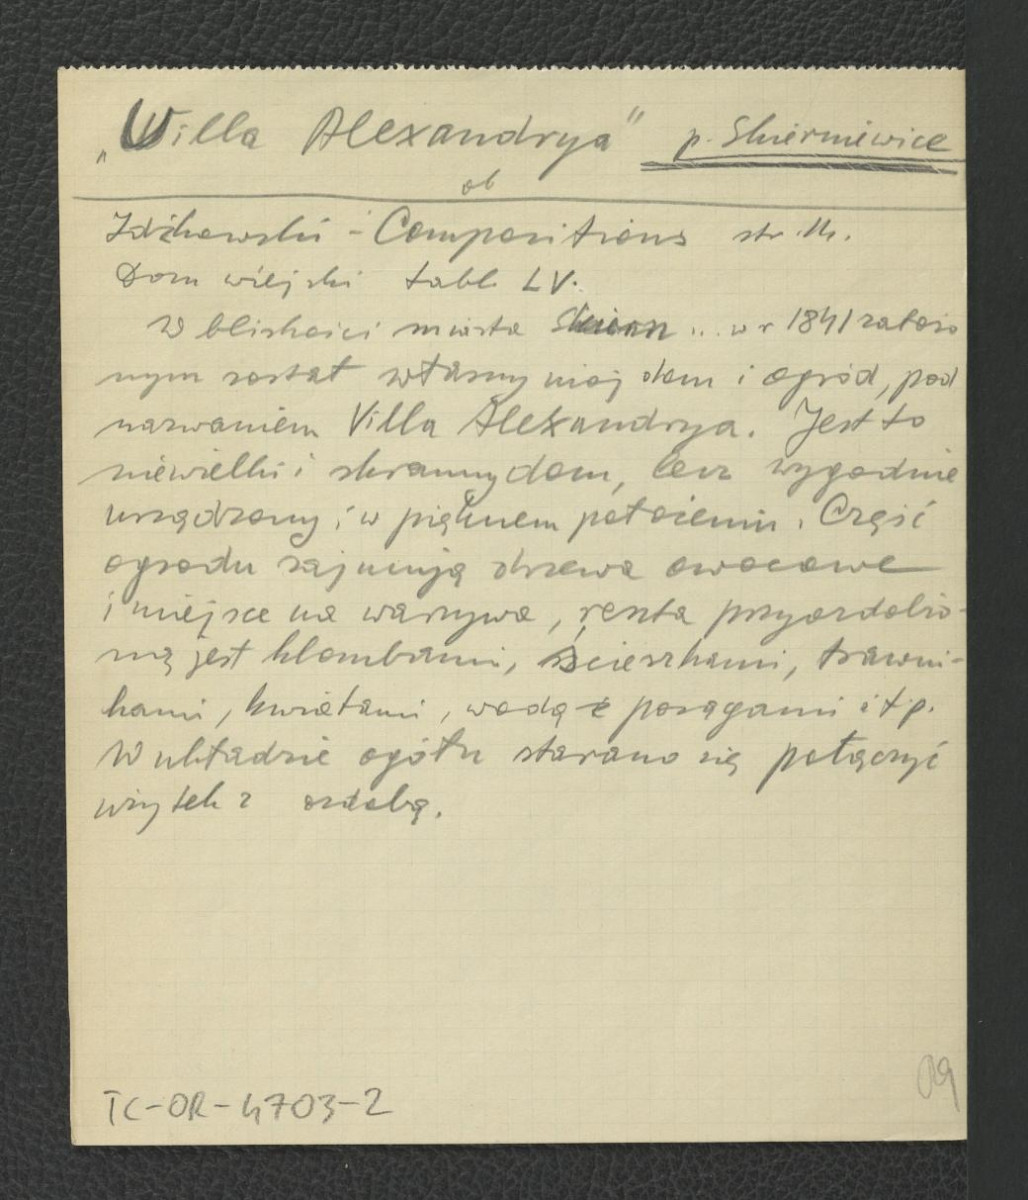 „Willa Alexandrya" p. Skierniewice
ob
Idźkowski - Compositions str. 14.
Dom wiejski tabl. LV.
W bliskości miasta Skiern... w r 1841 założo
nym został własny mój dom i ogród, pod
nazwaniem Villa Alexandrya. Jest to
niewielki i skromny dom, lecz wygodnie
urządzony i w pięknem położeniu. Część
ogrodu zajmują drzewa owocowe
i miejsce na warzywa, reszta przyozdobio-
ną jest klombami, ścieszkami, trawni-
kami, kwiatami, wodą z posągami i t p.
W układzie ogółu starano się połączyć
użytek z ozdobą.
TC-OR-4703-2